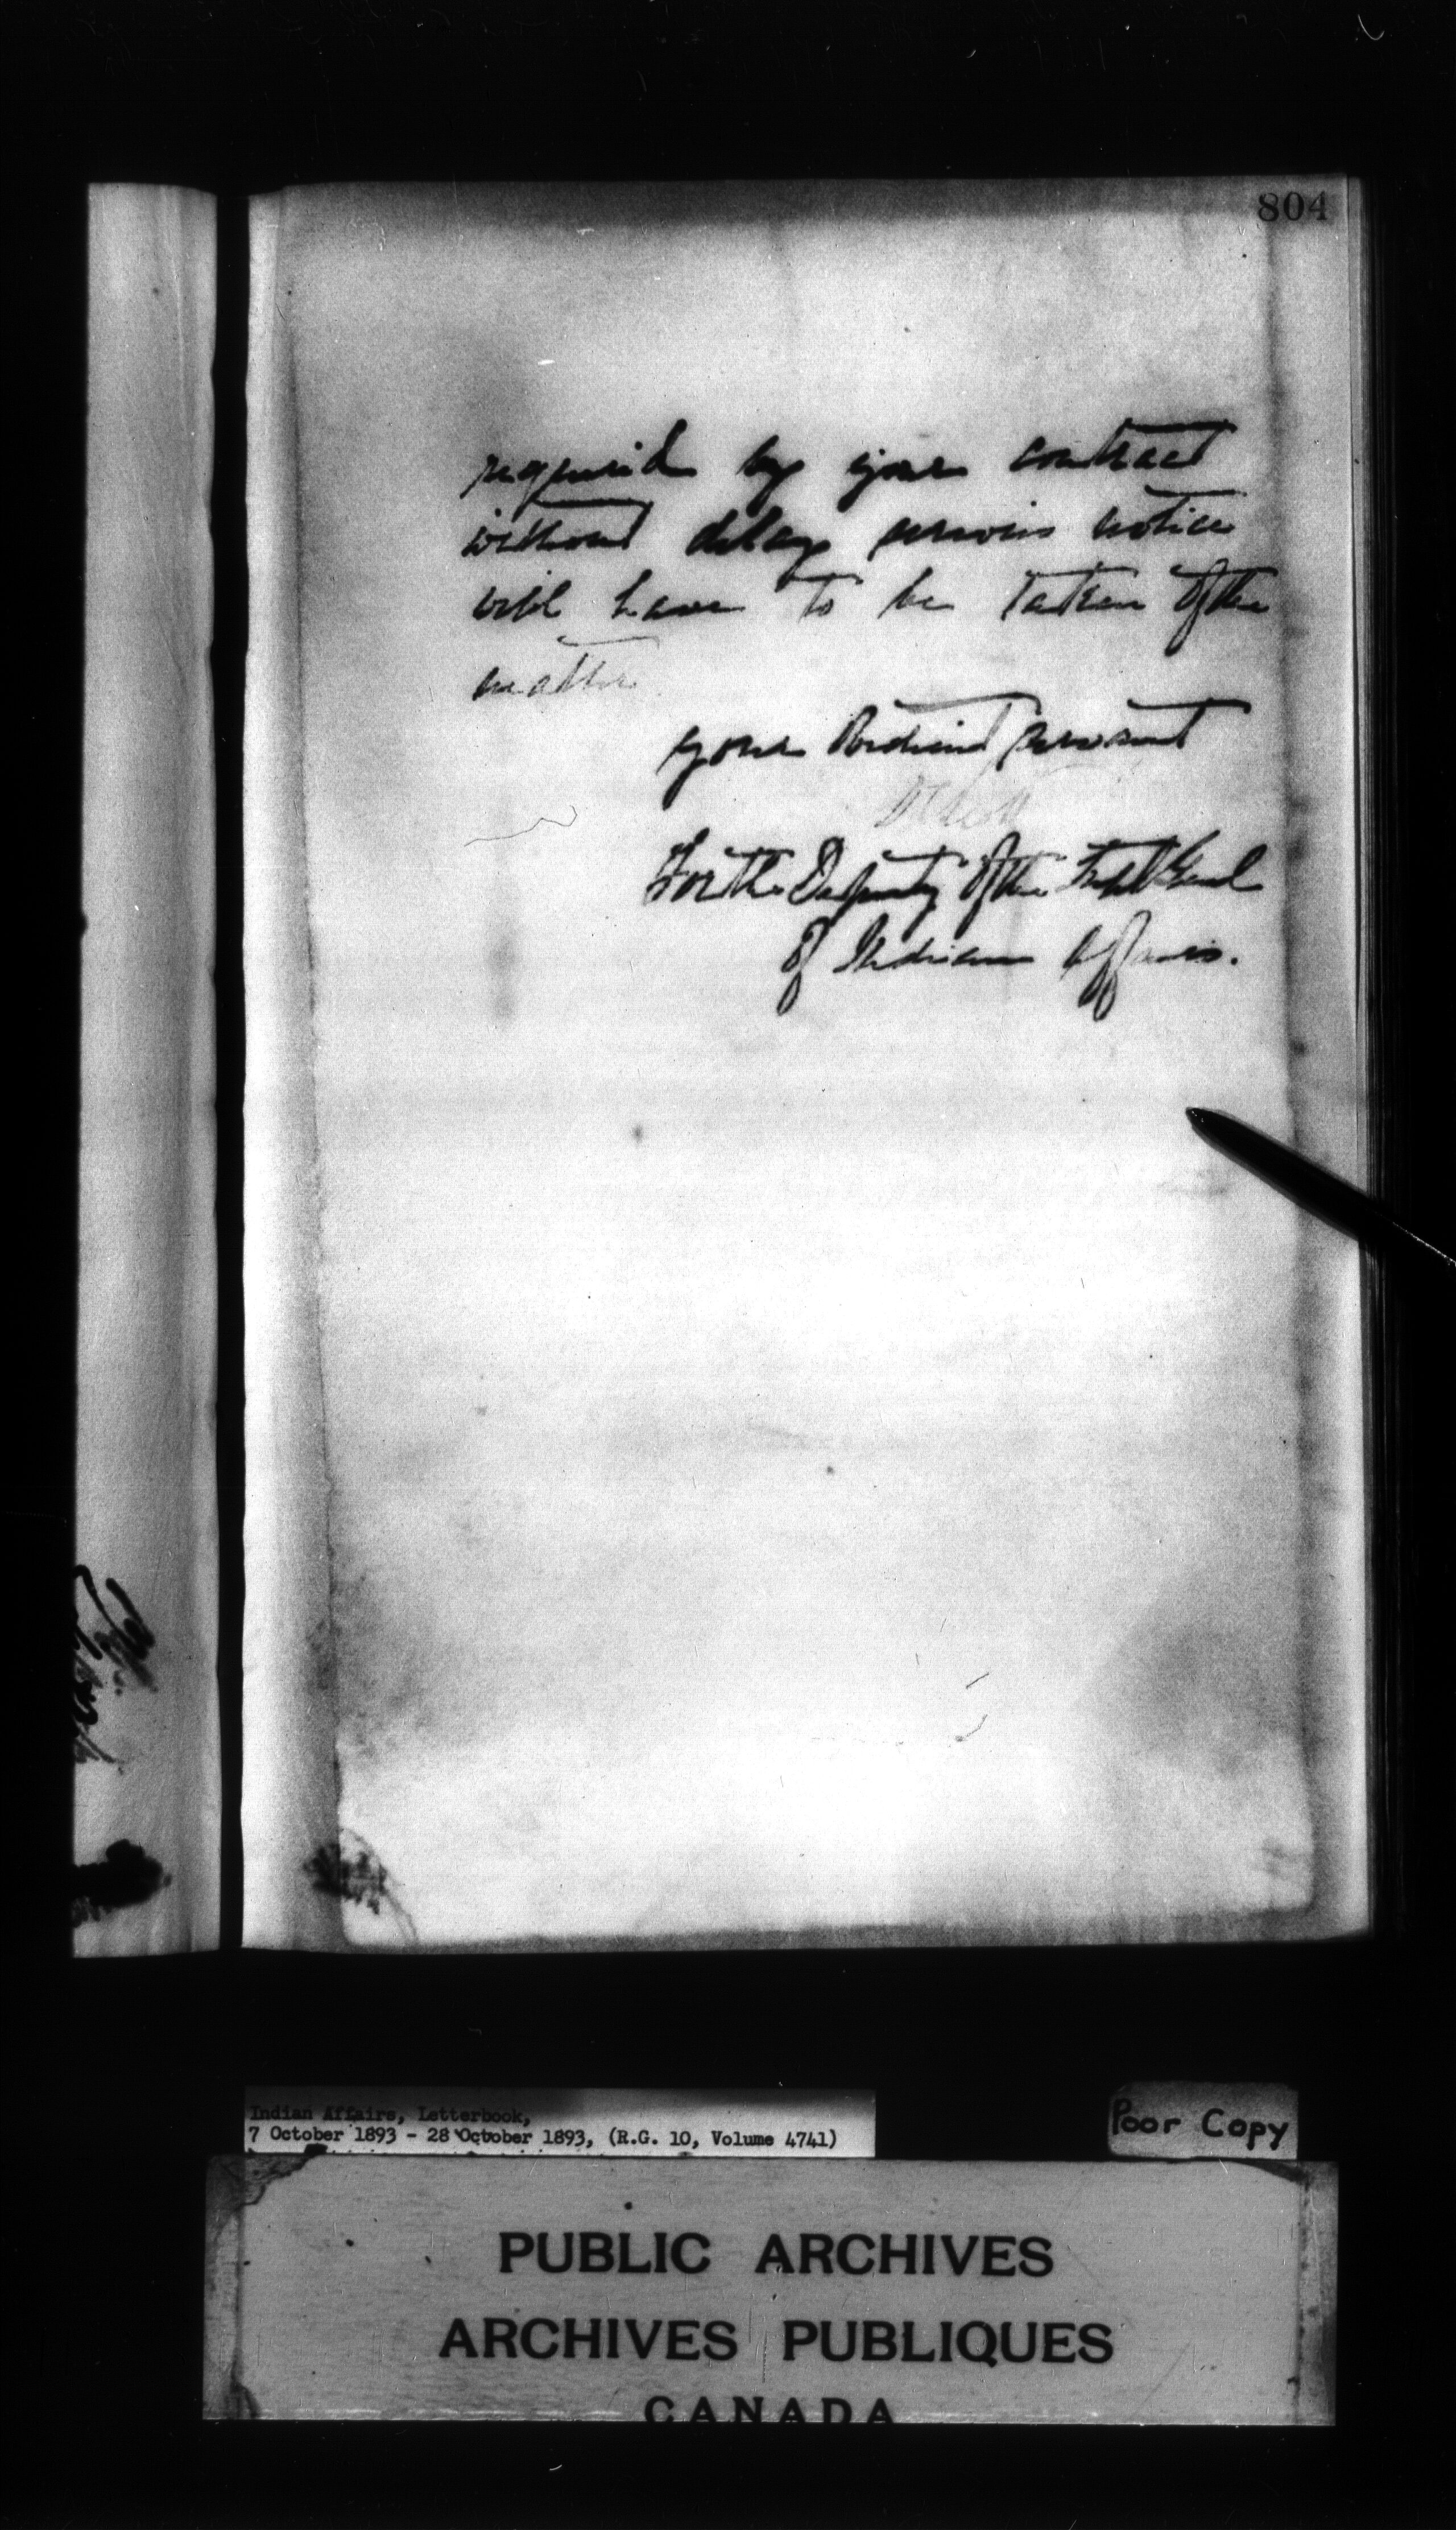 804
required by your contract
without delay serious notice
will have to be taken of the
matter
Your Obedient Servant
For the Deputy of the Supt Genl
of Indian Affairs.
Indian Affairs, Letterbook,
7 October 1893 - 28 October 1893, (R.G. 10, Volume 4741)
Poor Copy
PUBLIC ARCHIVES
ARCHIVES PUBLIQUES
CANADA